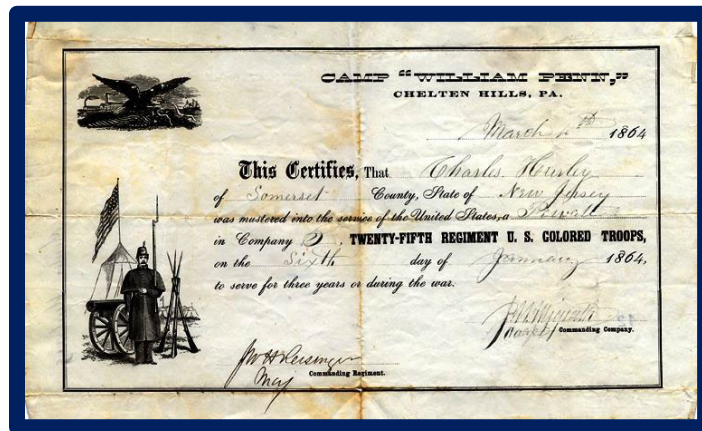 CAMP "WILLIAM PENN,"
CHELTEN HILLS, PA.
March 1864
This Certifies, That Charles Hurley
of Somerset County, State of New Jersey
was mustered into the service of the United States, a Private
in Company TWENTY-FIFTH REGIMENT U. S. COLORED TROOPS,
on the Sixth day of January 1864,
to serve for three years or during the war.
Commanding Company.
Commanding Regiment.